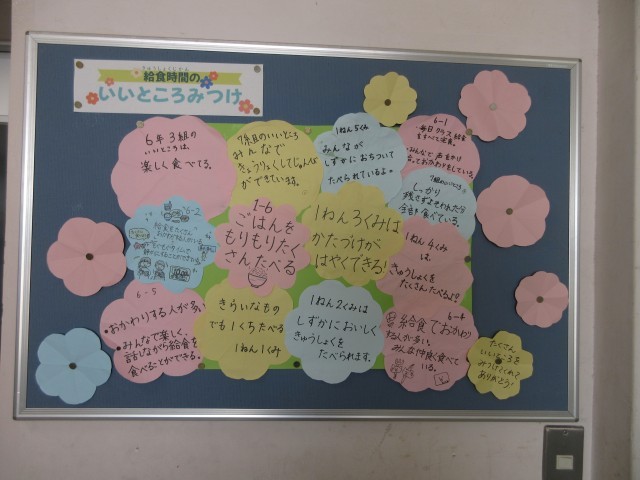 きゅうしょくじかん
給食時間の
いいところみつけ
6年3組の
いいところは、
楽しく食べてる。
7組のいいところ
みんなで
きょうりょくしてじゅんび
ができています。
1ねん5くみ
みんなが
しずかにおちついて
たべられているよ。
6-1
・毎日クラス
・みんなで声をかけ
しっかり
残さず
食べている。
6-2
給食をたくさん
1-6
ごはんを
もりもりたく
さんたべる
1ねん3くみは
かたづけが
はやくできる!
1ねん4くみ
は
きゅうしょくを
たくさんたべるよ!
6-5
・おかわりする人が多い
・みんなで楽しく、
話しながら給食を
食べることができる。
きらいなもの
でも1くちたべる
1ねん1くみ
1ねん2くみは
しずかにおいしく
きゅうしょくを
たべられます。
6-4
給食でおかわり
する人が多い。
みんな仲良く食べて
いる。
たくさん
いいところを
みつけてくれて
ありがとう!